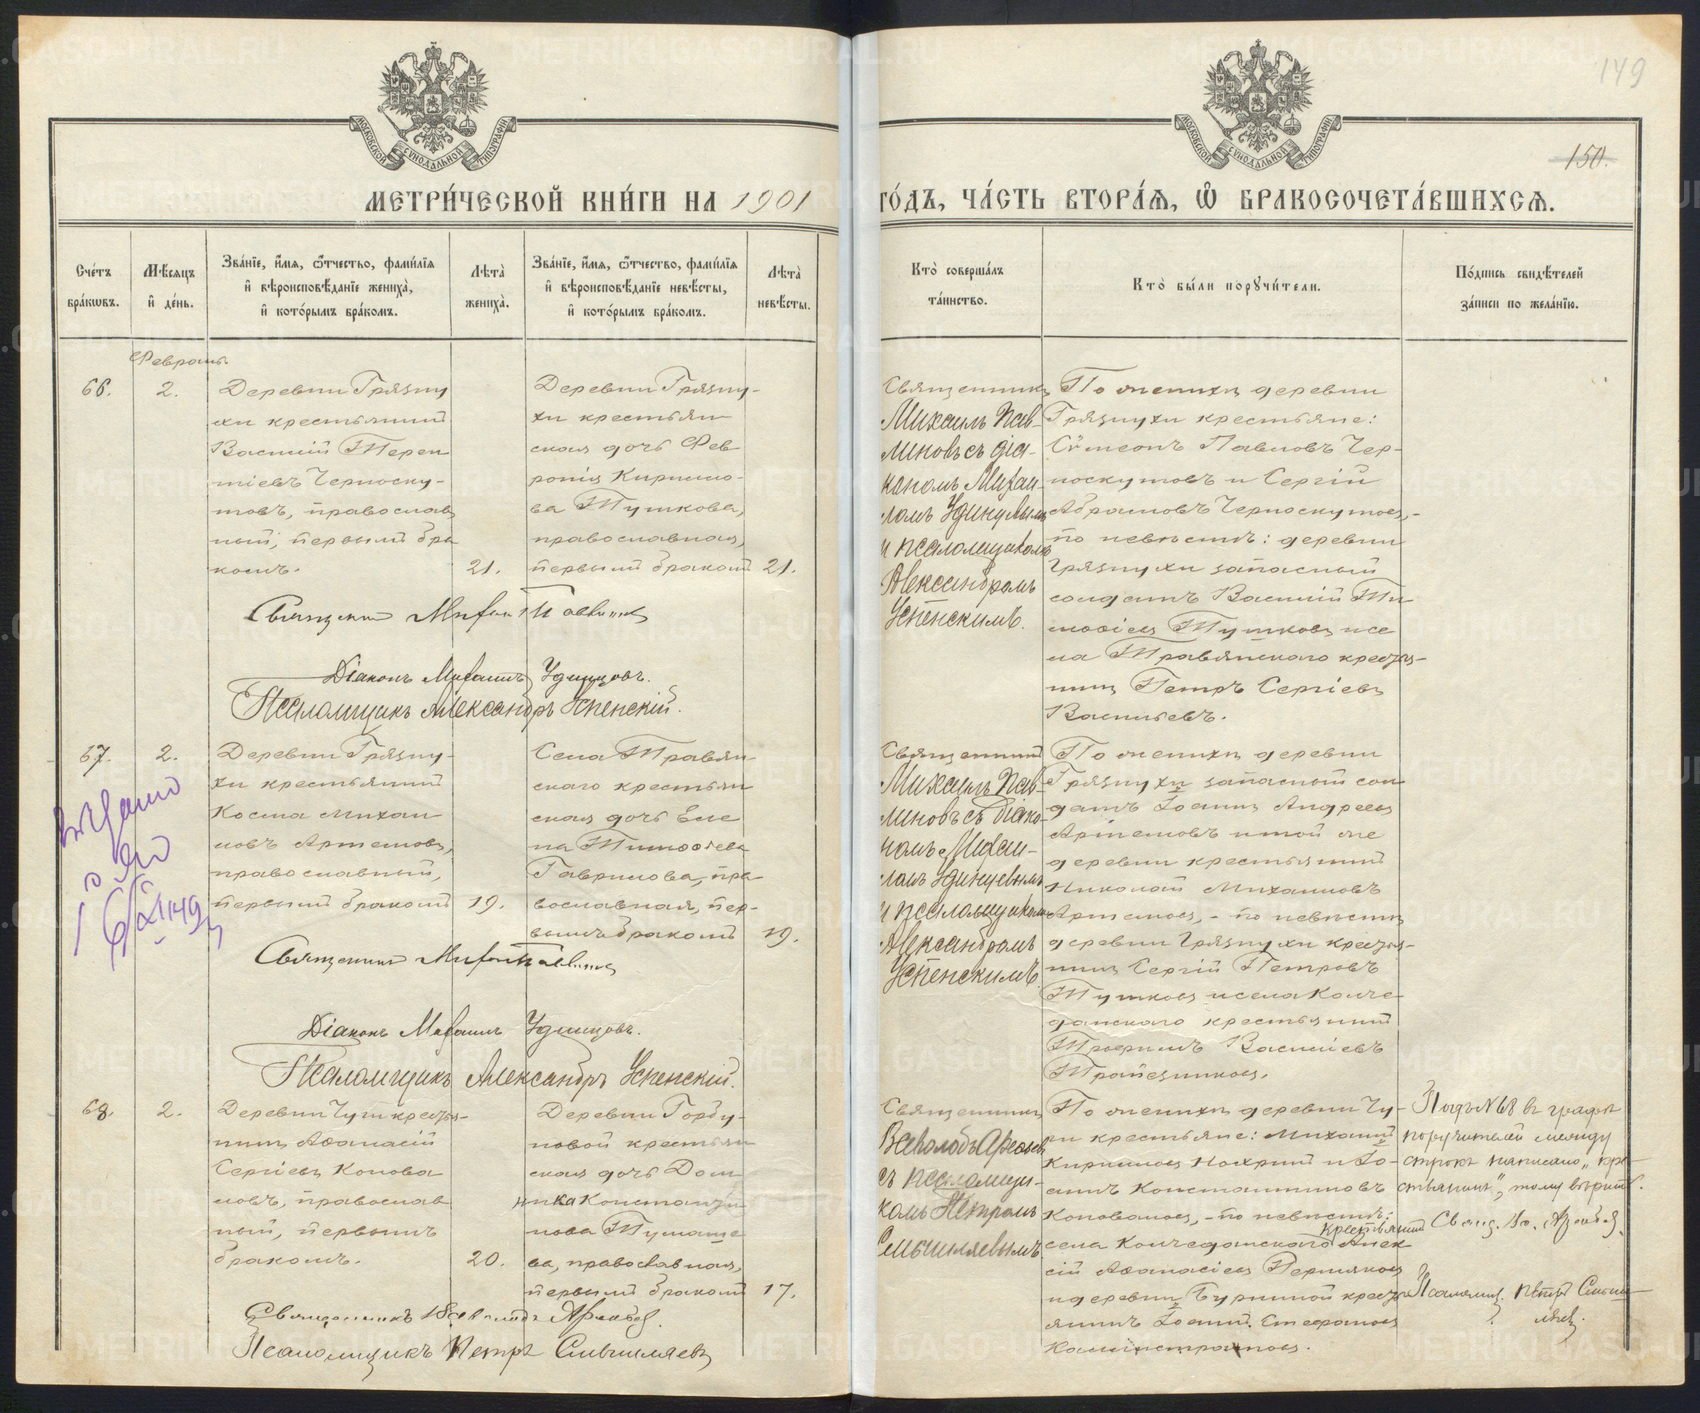 149
150.
МЕТРИ́ЧЕСКОЙ КНИ́ГИ НА 1901
ГО́ДЪ, ЧА́СТЬ ВТОРА́Я, Ѽ БРАКОСОЧЕТА́ВШИХСЯ.
Сче́тъ
бра́кѡвъ.
Мѣ́сяцъ
и҆ де́нь.
Зва́нїе, и҆́мя, ѻ҆́тчество, фами́лїя
и҆ вѣроисповѣ́данїе жениха̀,
и҆ кото́рымъ бра́комъ.
Лѣта̀
жениха̀.
Зва́нїе, и҆́мя, ѻ҆́тчество, фами́лїя
и҆ вѣроисповѣ́данїе невѣ́сты,
и҆ кото́рымъ бра́комъ.
Лѣта̀
невѣ́сты.
Кто̀ соверша́лъ
та́инство.
Кто̀ бы́ли порꙋчи́тели.
По́дпись свидѣ́телей
за́писи по жела́нїю.
Февраль
66.
2.
Деревни Грязну
хи крестьянинъ
Василій Терен
тіевъ Черноску-
товъ, православ
ный, первымъ бра
комъ.
21.
Деревни Грязну-
хи крестьян
ская дочь Фев
ронія Кирилло-
ва Тушкова,
православная,
первымъ бракомъ
21.
Священникъ
Михаилъ Пав-
линовъ съ діа-
кономъ Михаи-
ломъ Удинцевымъ
и псаломщикомъ
Александромъ
Успенскимъ.
По женихѣ деревни
Грязнухи крестьяне:
Сѵмеонъ Павловъ Чер-
носкутовъ и Сергій
Абрамовъ Черноскутовъ,-
по невѣстѣ: деревни
Грязнухи запасный
солдатъ Василій Ти
моѳіевъ Тушковъ и се
ла Травянскаго кресть-
нинъ Петръ Сергіевъ
Васильевъ.
Священникъ Михаилъ Павлиновъ
Діаконъ Михаилъ Удинцовъ.
Псаломщикъ Александръ Успенскій.
67.
2.
Деревни Грязну-
хи крестьянинъ
Косма Михаи
ловъ Артемовъ,
православный,
первымъ бракомъ
19.
Села Травян
скаго крестьян
ская дочь Еле
на Тимоѳеева
Гаврилова, пра-
вославная, пер-
вымъ бракомъ
19.
Священникъ
Михаилъ Пав-
линовъ съ діако-
номъ Михаи-
ломъ Удинцевымъ
и псаломщикомъ
Александромъ
Успенскимъ.
По женихѣ деревни
Грязнухи запасный сол
датъ Іоаннъ Андреевъ
Артемовъ и той же
деревни крестьянинъ
Николай Михаиловъ
Артемовъ, - по невѣстѣ
деревни Грязнухи кресть-
нинъ Сергій Петровъ
Тушковъ и села Колче-
данскаго крестьянинъ
Трофимъ Васильевъ
Трапезниковъ.
Священникъ Михаилъ Павлиновъ
Діаконъ Михаилъ Удинцовъ.
Псаломщикъ Александръ Успенскій.
68.
2.
Деревни Чуги кресть-
нинъ Аѳанасій
Сергіевъ Конова
ловъ, православ
ный, первымъ
бракомъ.
20.
Деревни Горбу-
новой крестьян
ская дочь Дом
ника Константи
нова Тумаше
ва, православная,
первымъ бракомъ
17.
Священникъ
Всеволодъ
съ псаломщи-
комъ Петромъ
Смышляевымъ
По женихѣ деревни Чу-
ги крестьяне: Михаилъ
Кирилловъ и Іо-
аннъ Константиновъ
Коноваловъ, - по невѣстѣ:
крестьянинъ
села Колчеданскаго Алек
сій Аѳанасіевъ Пермяковъ
и деревни Бурниной кресть
янинъ Іоаннъ Стефановъ
Подъ №68 въ графѣ
поручителей между
строкъ написано „кре-
стьянинъ", тому вѣрить.
Псаломщ. Петръ Смыш-
ляев.
Священникъ Всеволодъ
Псаломщикъ Петръ Смышляевъ